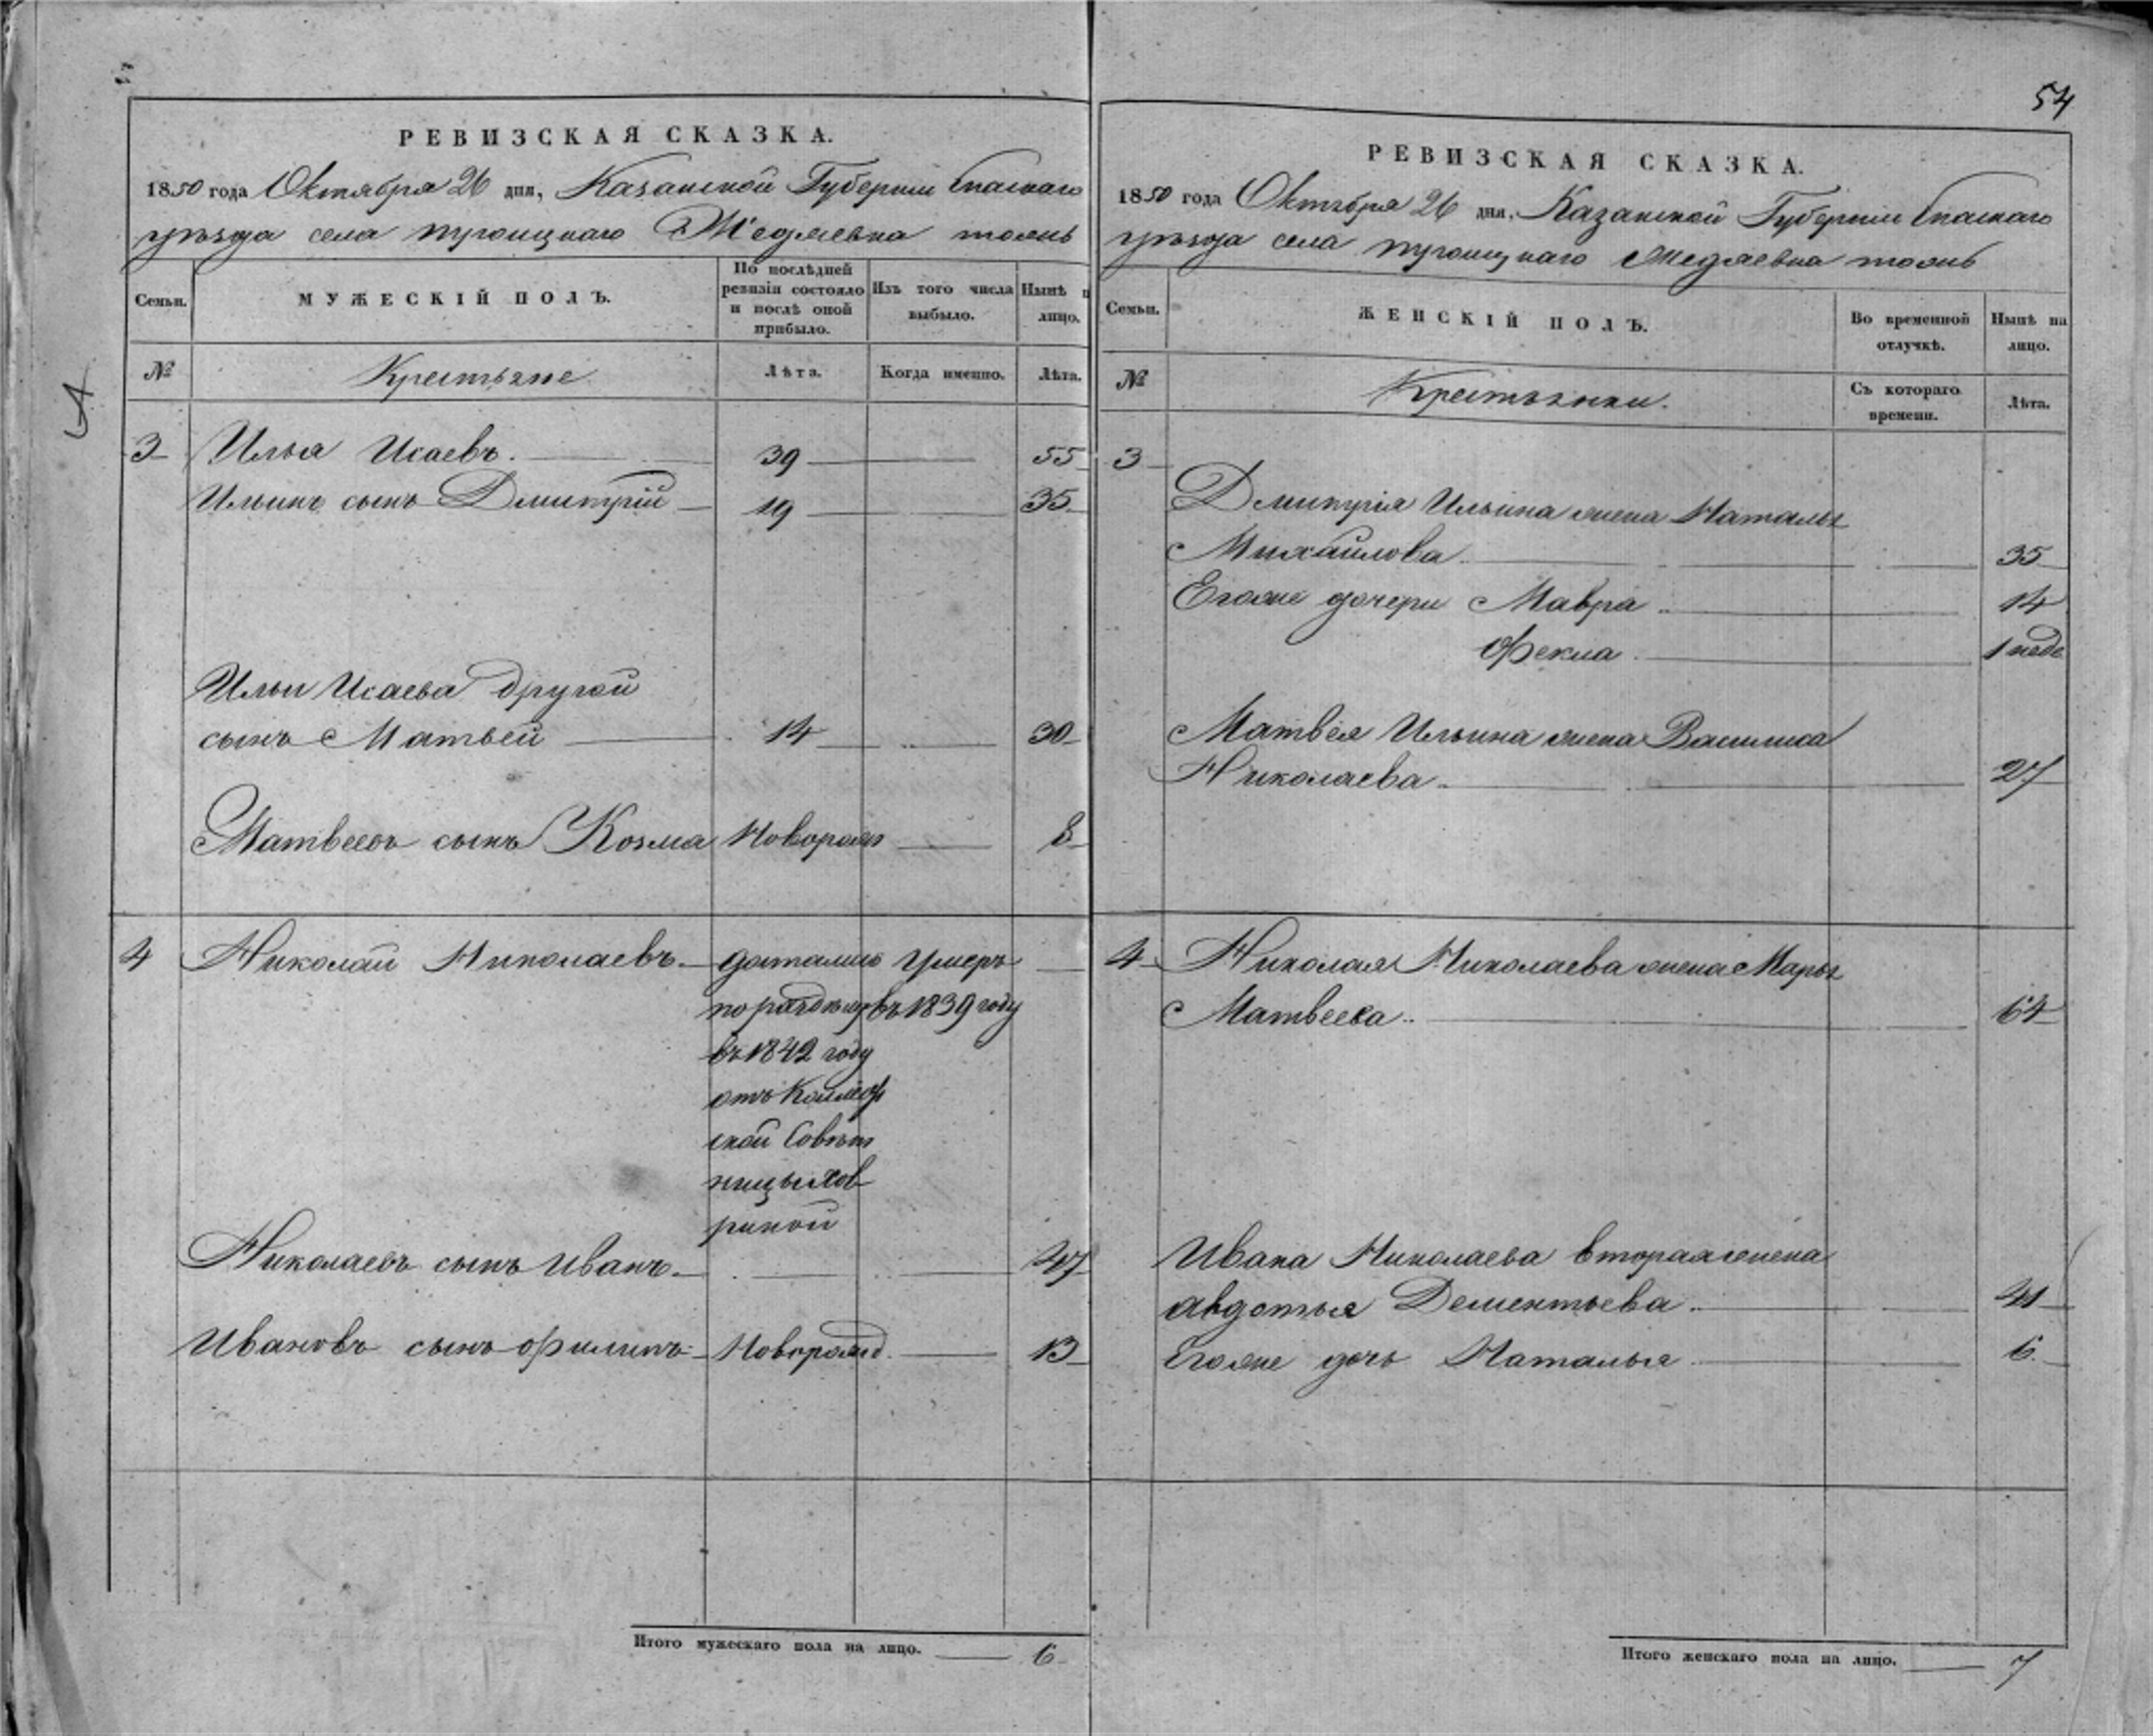 54
РЕВИЗСКАЯ СКАЗКА.
1850 года Октября 26 дня, Казанской Губернiи Спаскаго
уѣзда села Троицкаго Медяевка тожъ
Семьи.
МУЖЕСКІЙ ПОЛЪ.
По послѣдней ревизіи состояло и послѣ оной прибыло.
Изъ того числа выбыло.
Нынѣ н лицо.
№
Крестьяне
Лѣта.
Когда именно.
Лѣта.
3 Илья Исаевъ. 39 55
Ильинъ сынъ Дмитрій 19 35
Ильи Исаева другой
сынъ Матвей 14 30
Матвеевъ сынъ Козма Новорож 8
4 Николай Николаевъ достался Умеръ
по раздѣлу въ 1839 году
въ 1842 году
отъ Коллеж
ской Совѣт
ницы Хов
риной
Николаевъ сынъ Иванъ 47
Ивановъ сынъ Филипъ Новорожд 13
Итого мужескаго пола на лицо. 6
РЕВИЗСКАЯ СКАЗКА.
1850 года Октября 26 дня, Казанской Губернiи Спаскаго
уѣзда села Троицкаго Медяевка тожъ
Семьи.
ЖЕНСКІЙ ПОЛЪ.
Во временной отлучкѣ.
Нынѣ на лицо.
№
Крестьянки.
Съ котораго времени.
Лѣта.
3
Дмитрія Ильина жена Наталья
Михайлова 35
Егоже дочери Мавра 14
Фекла 1 неде
Матвея Ильина жена Василиса
Николаева 27
4 Николая Николаева жена Марья
Матвеева 64
Ивана Николаева вторая жена
Авдотья Дементьева 41
Егоже дочь Наталья 6
Итого женскаго пола на лицо. 7